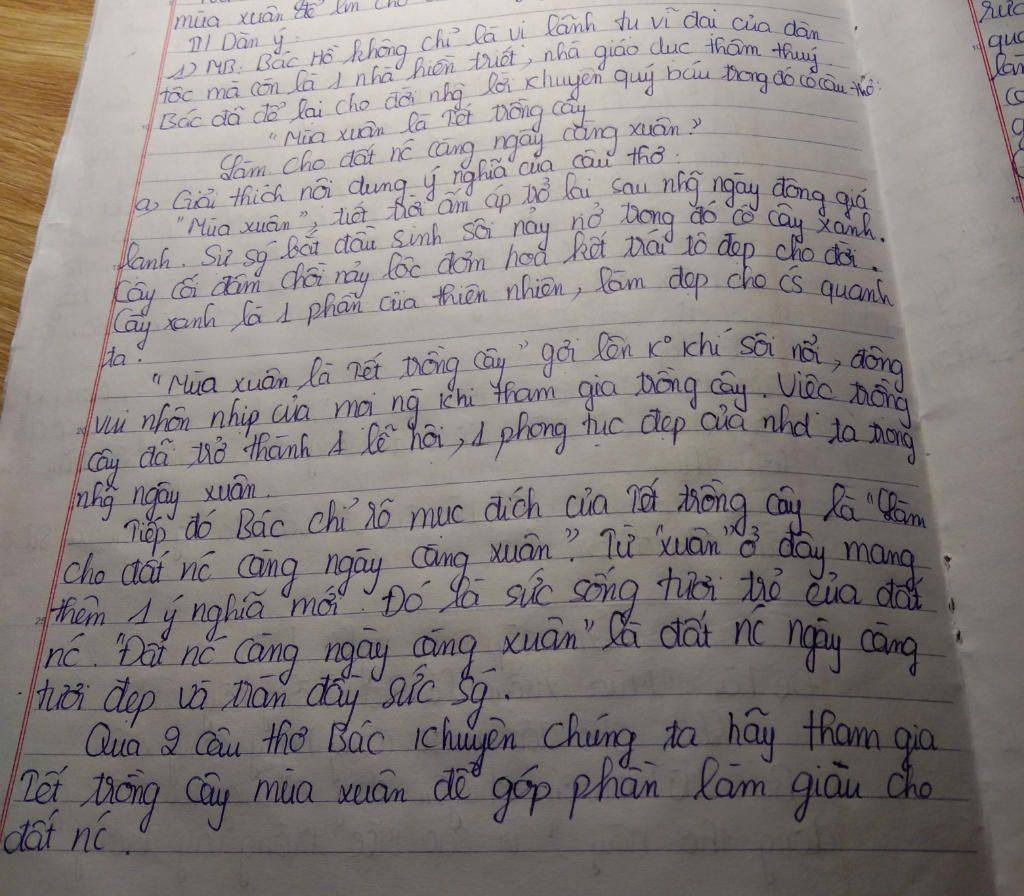 mùa xuân để làm cho
III/ Dàn ý:
1) MB: Bác Hồ không chỉ là vị lãnh tụ vĩ đại của dân
tộc mà còn là 1 nhà hiền triết, nhà giáo dục thâm thuý.
Bác đã để lại cho đời nhg̃ lời khuyên quý báu trong đó có câu thơ:
"Mùa xuân là Tết trồng cây
Làm cho đất nc càng ngày càng xuân"
a, Giải thích nội dung ý nghĩa của câu thơ:
"Mùa xuân": tiết trời ấm áp trở lại sau nhg̃ ngày đông giá
lạnh. Sự sg bắt đầu sinh sôi nảy nở trong đó có cây xanh.
Cây cối đâm chồi nảy lộc đơm hoa kết trái tô đẹp cho đời.
Cây xanh là 1 phần của thiên nhiên, làm đẹp cho c/s quanh
ta.
"Mùa xuân là Tết trồng cây" gợi lên k° khí sôi nổi, đông
vui nhộn nhịp của mọi ng khi tham gia trồng cây. Việc trồng
cây đã trở thành 1 lễ hội, 1 phong tục đẹp của nhd ta trong
nhg̃ ngày xuân.
Tiếp đó Bác chỉ rõ mục đích của Tết trồng cây là "Làm
cho đất nc càng ngày càng xuân". Từ "xuân" ở đây mang
thêm 1 ý nghĩa mới. Đó là sức sống tươi trẻ của đất
nc. "Đất nc càng ngày càng xuân" là đất nc ngày càng
tươi đẹp và tràn đầy sức sg.
Qua 2 câu thơ Bác khuyên chúng ta hãy tham gia
Tết trồng cây mùa xuân để góp phần làm giàu cho
đất nc.